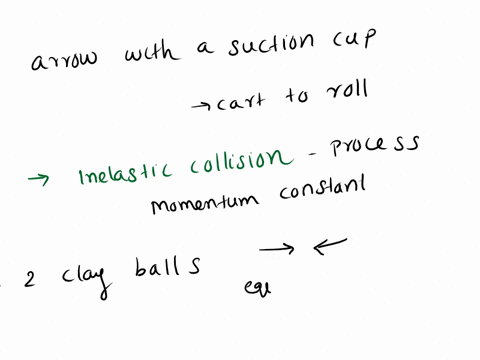 arrow with a suction cup
→ cart to roll
→ Inelastic collision - process
momentum constant
2 clay balls → ←
equ